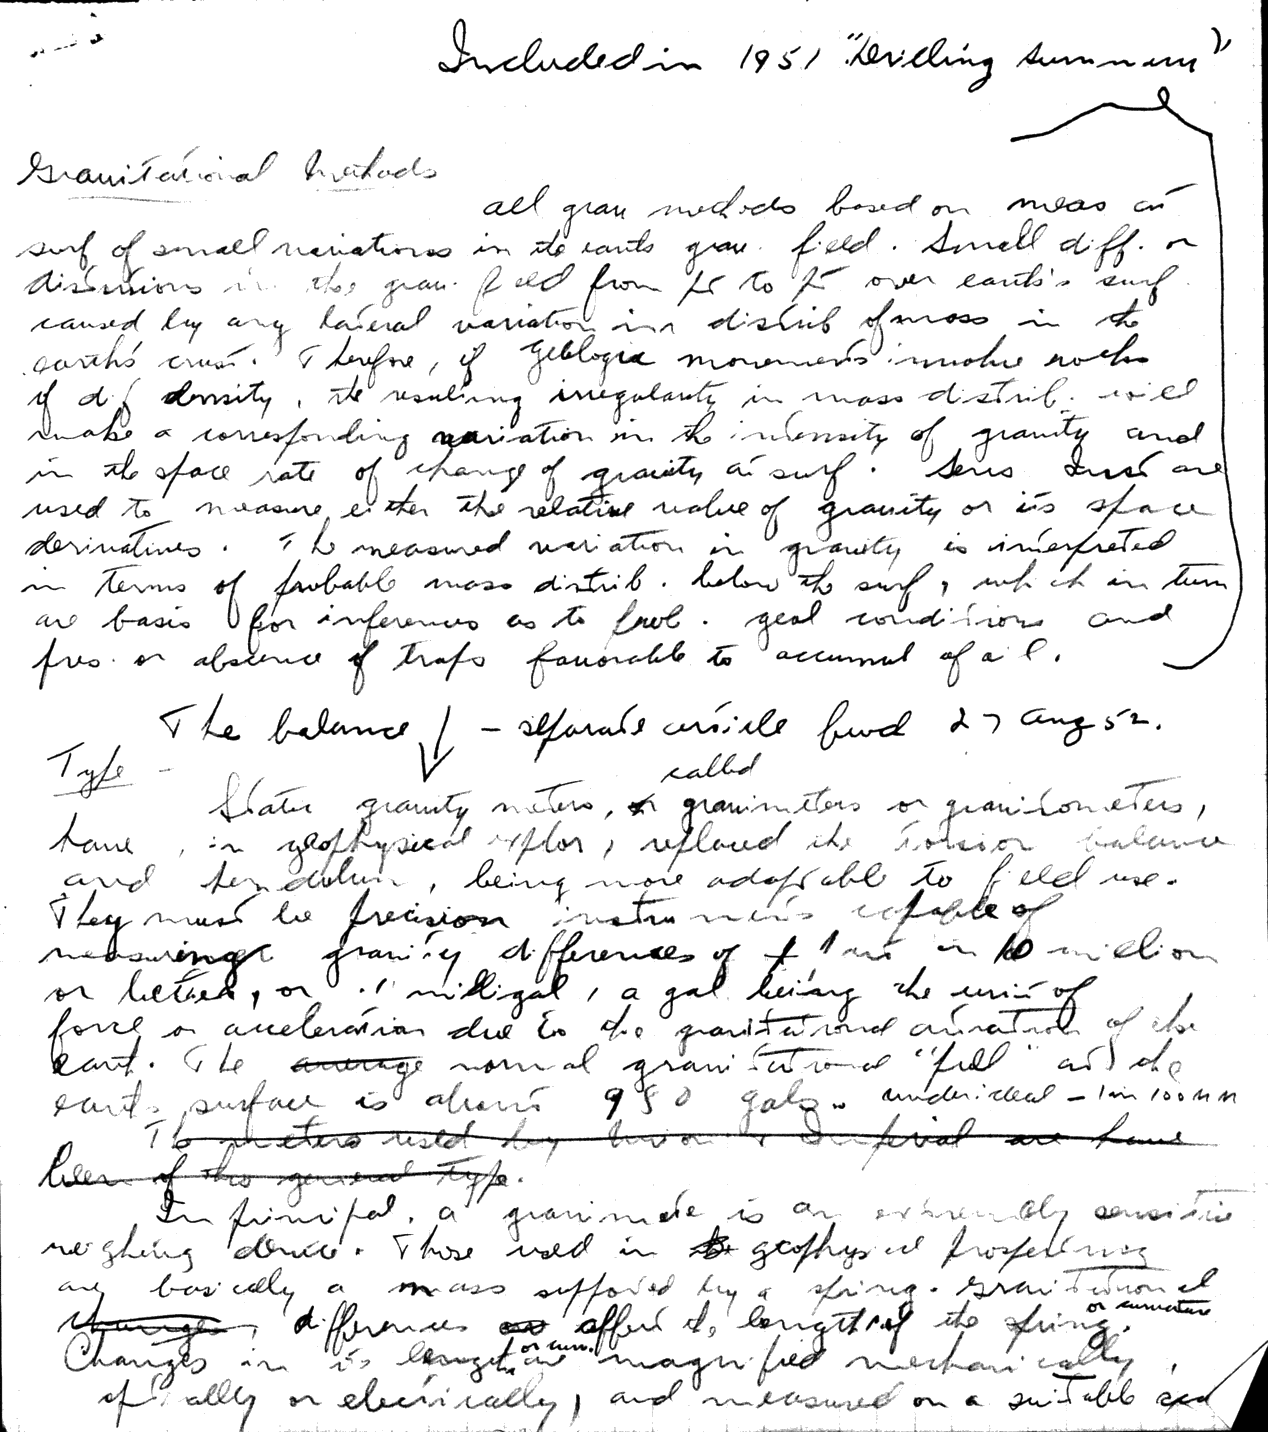 Included in 1951 "Drilling Summary"
Gravitational Methods
All grav methods based on meas at
surf of small variations in the earts grav. field. Small diff. or
distortions in the grav. field from pt to pt over earth's surf
caused by any lateral variation in distrib of mass in the
earth's crust. Therefore, if geologic movements involve rocks
of dif density, the resulting irregularity in mass distrib. will
make a corresponding variation in the intensity of gravity and
in the space rate of change of gravity at surf. Sens Inst are
used to measure either the relative value of gravity or its space
derivatives. The measured variation in gravity is interpreted
in terms of probable mass distrib. below the surf, which in turn
are basis for inferences as to prob. geol conditions and
pres. or absence of traps favorable to accumul of oil.
The balance ↓ - separate article fwd 27 Aug 52.
Type -
called
Static gravity meters, or gravimeters or gravitometers,
have, in geophysical explor, replaced the torsion balance
and pendulum, being more adaptable to field use.
They must be precision instruments capable of
measuring gravity differences of ± 1 unit in 10 million
or better, or .1 milligal, a gal being the unit of
force or acceleration due to the gravitational attraction of the
eart. The average normal gravitational "pull" at the
earts surface is about 980 gals. - 1 in 100 MM
The meters used by Union & Imperial are have
been of this general type.
In principal, a gravimete is an extremely sensitive
weighing device. Those used in geophysical prospecting
are basically a mass supported by a spring. Gravitational
changes, differences affect the length of the spring. or curvature
Changes in its length or curv. are magnified mechanically,
optically or electrically, and measured on a suitable scal